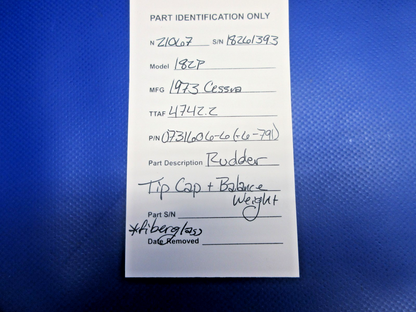 PART IDENTIFICATION ONLY
N 21067 S/N 18261393
Model 182P
MFG 1973 Cessna
TTAF 4742.2
P/N 0731606-6 (-6-791)
Part Description Rudder
Tip Cap + Balance
Weight
Part S/N
*fiberglass
Date Removed